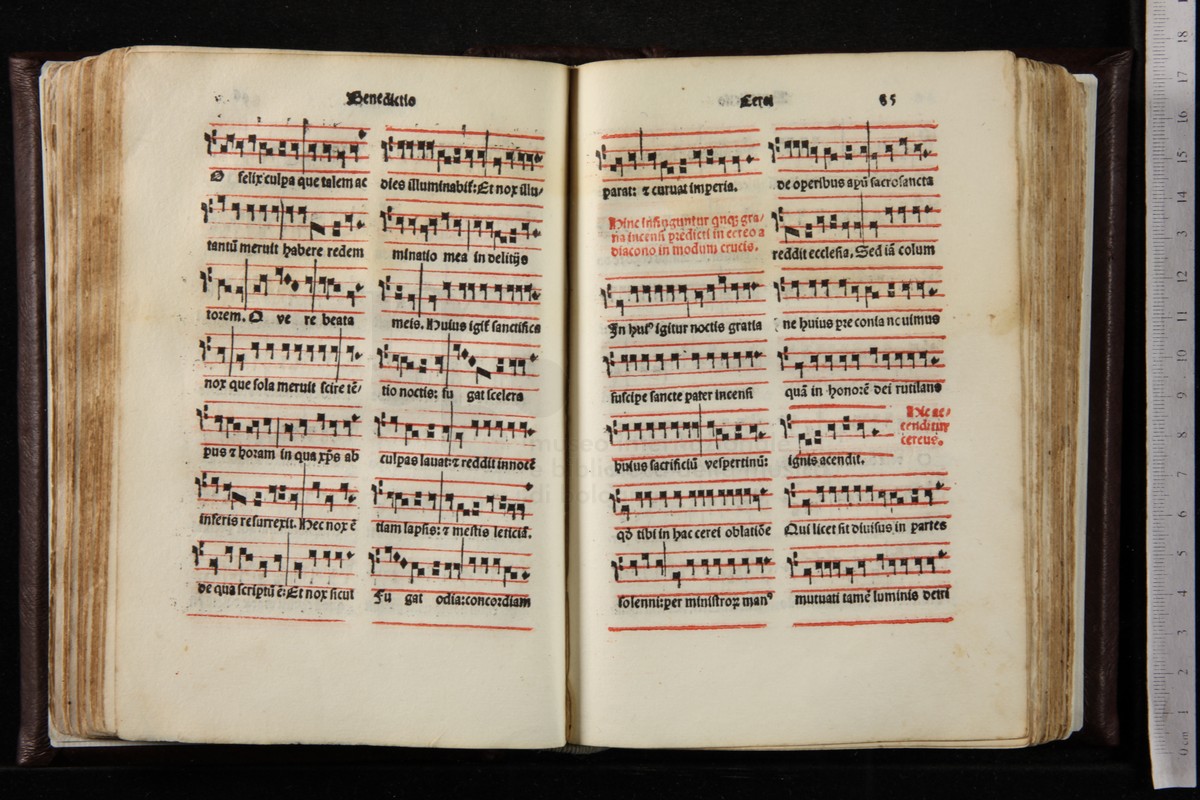 Benedictio
O felix culpa que talem ac
tantū meruit habere redem
torem. O ve re beata
nox que sola meruit scire tē/
pus ⁊ horam in qua xp̄s ab
inferis resurrexit. Hec nox ē
de qua scriptū ē: Et nox sicut
dies illuminabit̃: Et nox illu/
minatio mea in delitijs
meis. Huius igit̃ sanctifica
tio noctis: fu gat scelera
culpas lauat: ⁊ reddit innocē
tiam lapsis: ⁊ mestis leticiā.
Fu gat odia: concordiam
Cerei 85
parat: ⁊ curuat imperia.
Hinc infinguntur qnq₃ gra/
na incensi predicti in cereo a
diacono in modum crucis.
In huiꝰ igitur noctis gratia
suscipe sancte pater incensi
huius sacrificiū vespertinū:
qđ tibi in hac cerei oblatiōe
solenni: per ministroꝝ manꝰ
de operibus apū sacrosancta
reddit ecclesia. Sed iā colum
ne huius pre conia nouimus
quā in honorē dei rutilans
Hic ac/
cenditur
cereus.
ignis acendit.
Qui licet sit diuisus in partes
mutuati tamē luminis detri
18
17
16
15
14
13
12
11
10
9
8
7
6
5
4
3
2
1
0 cm